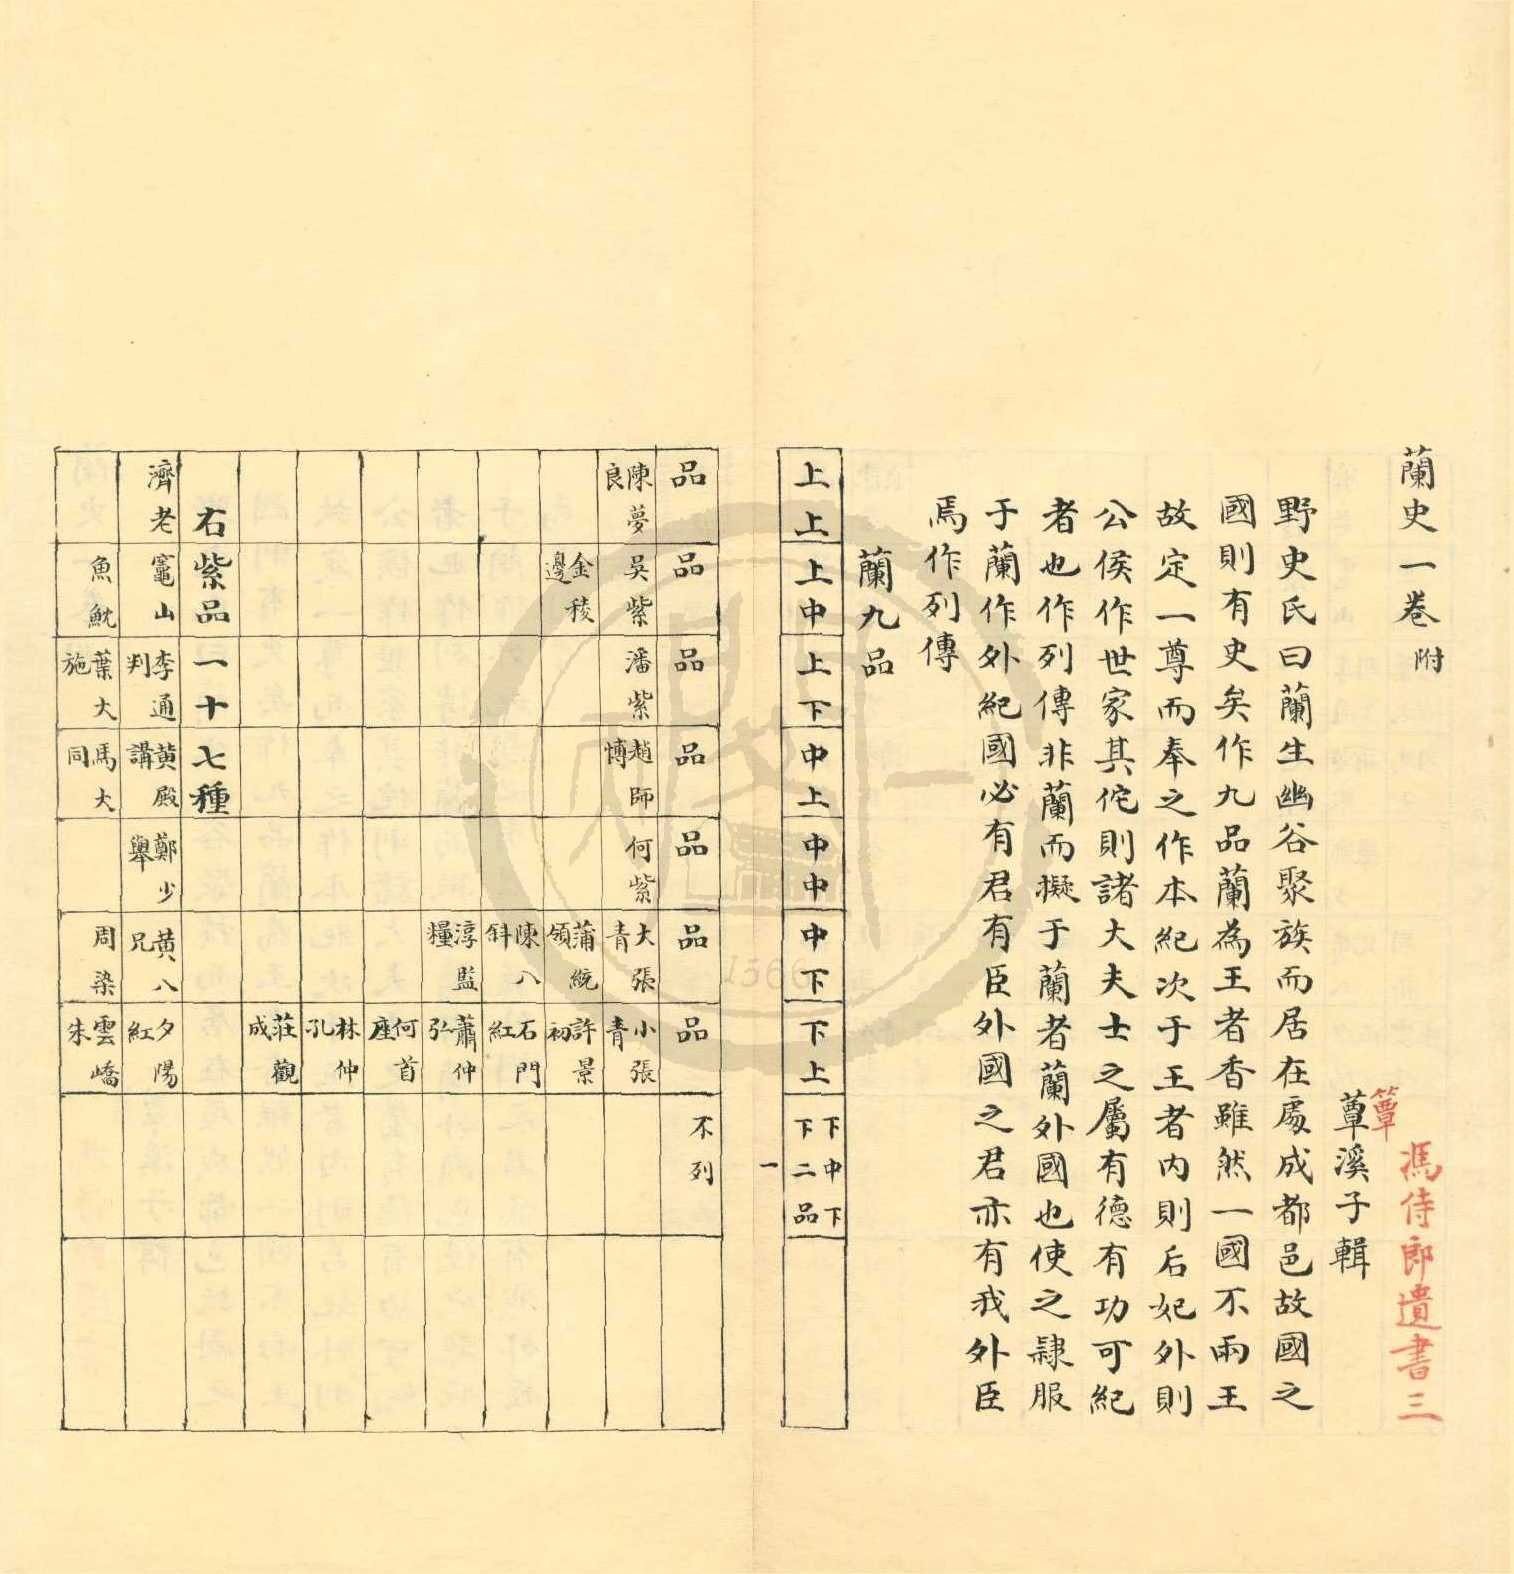 蘭史一卷附
馮侍郎遺書三
簟
蕈溪子輯
野史氏曰蘭生幽谷聚族而居在處成都邑故國之
國則有史矣作九品蘭為王者香雖然一國不兩王
故定一尊而奉之作本紀次于王者內則后妃外則
公侯作世家其佗則諸大夫士之屬有德有功可紀
者也作列傳非蘭而擬于蘭者蘭外國也使之隷服
于蘭作外紀國必有君有臣外國之君亦有我外臣
焉作列傳
蘭九品
上上 上中 上下 中上 中中 中下 下上 下中下下二品
一
品 品 品 品 品 品 品 不列
陳夢良 吳紫 潘紫 趙師博 何紫 大張青 小張青
金稜邊 蒲統領 許景初
陳八斜 石門紅
淳監糧 蕭仲弘
何首座
林仲孔
莊觀成
右紫品一十七種
濟老 竈山 李通判 黄殿講 鄭少舉 黄八兄 夕陽紅
魚魫 葉大施 馬大同 周染 雲嶠朱
1566